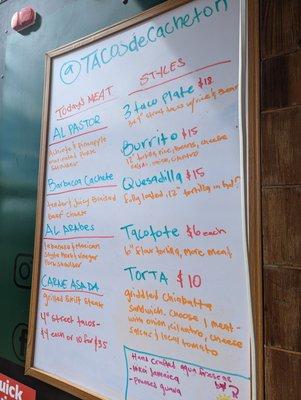 @TACOSdeCacheton
TODAYS MEAT
AL PASTOR
Achiote & Pineapple
marinated pork
shoulder
Barbacoa Cachete
tender & juicy Braised
Beef cheeks
AL ARABES
Lebanese & Mexican
style herb vinegar
Pork shoulder
CARNE ASADA
grilled skirt steak
4" street tacos-
$4 each or 10 for $35
STYLES
3 taco Plate $18
3x4" street tacos w/rice & beans
Burrito $15
12" tortilla, rice, beans, cheese
salsa, onion, cilantro
Quesadilla $15
fully loaded, 12" tortilla
Tacotote $6 each
6" flour tortilla, more meat
TORTA $10
griddled chiapatta
sandwich, choose 1 meat-
with onion, cilantro, cheese
salsa & local tomato
Hand crafted agua frescas
- Hibi Jamaica
guava
quick